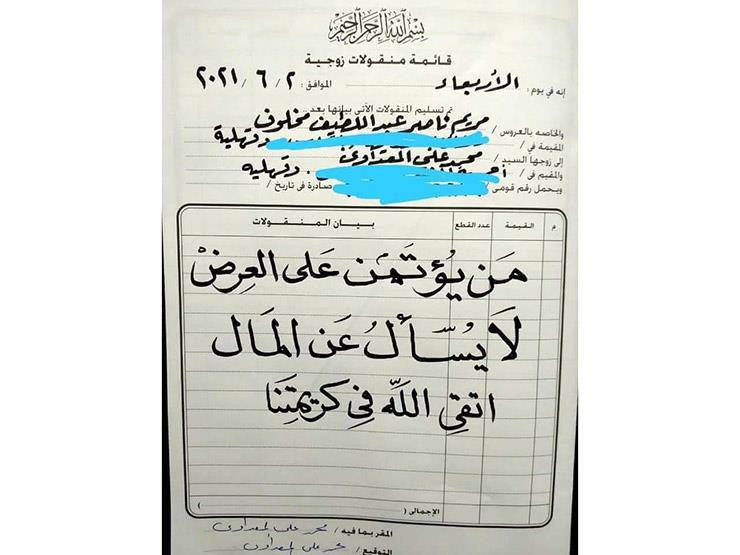 بسم الله الرحمن الرحيم
قائمة منقولات زوجية
إنه في يوم : الأربعاء الموافق : ٢ / ٦ / ٢٠٢١
تم تسليم المنقولات الآتى بيانها بعد ..
والخاصه بالعروس / مريم ناصر عبد اللطيف مخلوف
المقيمة في / دقهلية
إلى زوجها السيد / محمد على المعداوى
والمقيم فى / دقهليه
ويحمل رقم قومى / صادرة فى تاريخ /
م القيمة عدد القطع بيـان المنقـولات
مَن يُؤتَمَن عَلى العِرضْ
لَا يُسْأَلُ عَن المَال
اتقِ اللَّه فِي كَريمتِنَا
الإجمالى ( )
المقر بما فيه / محمد على المعداوى
التوقيع / محمد على المعداوى